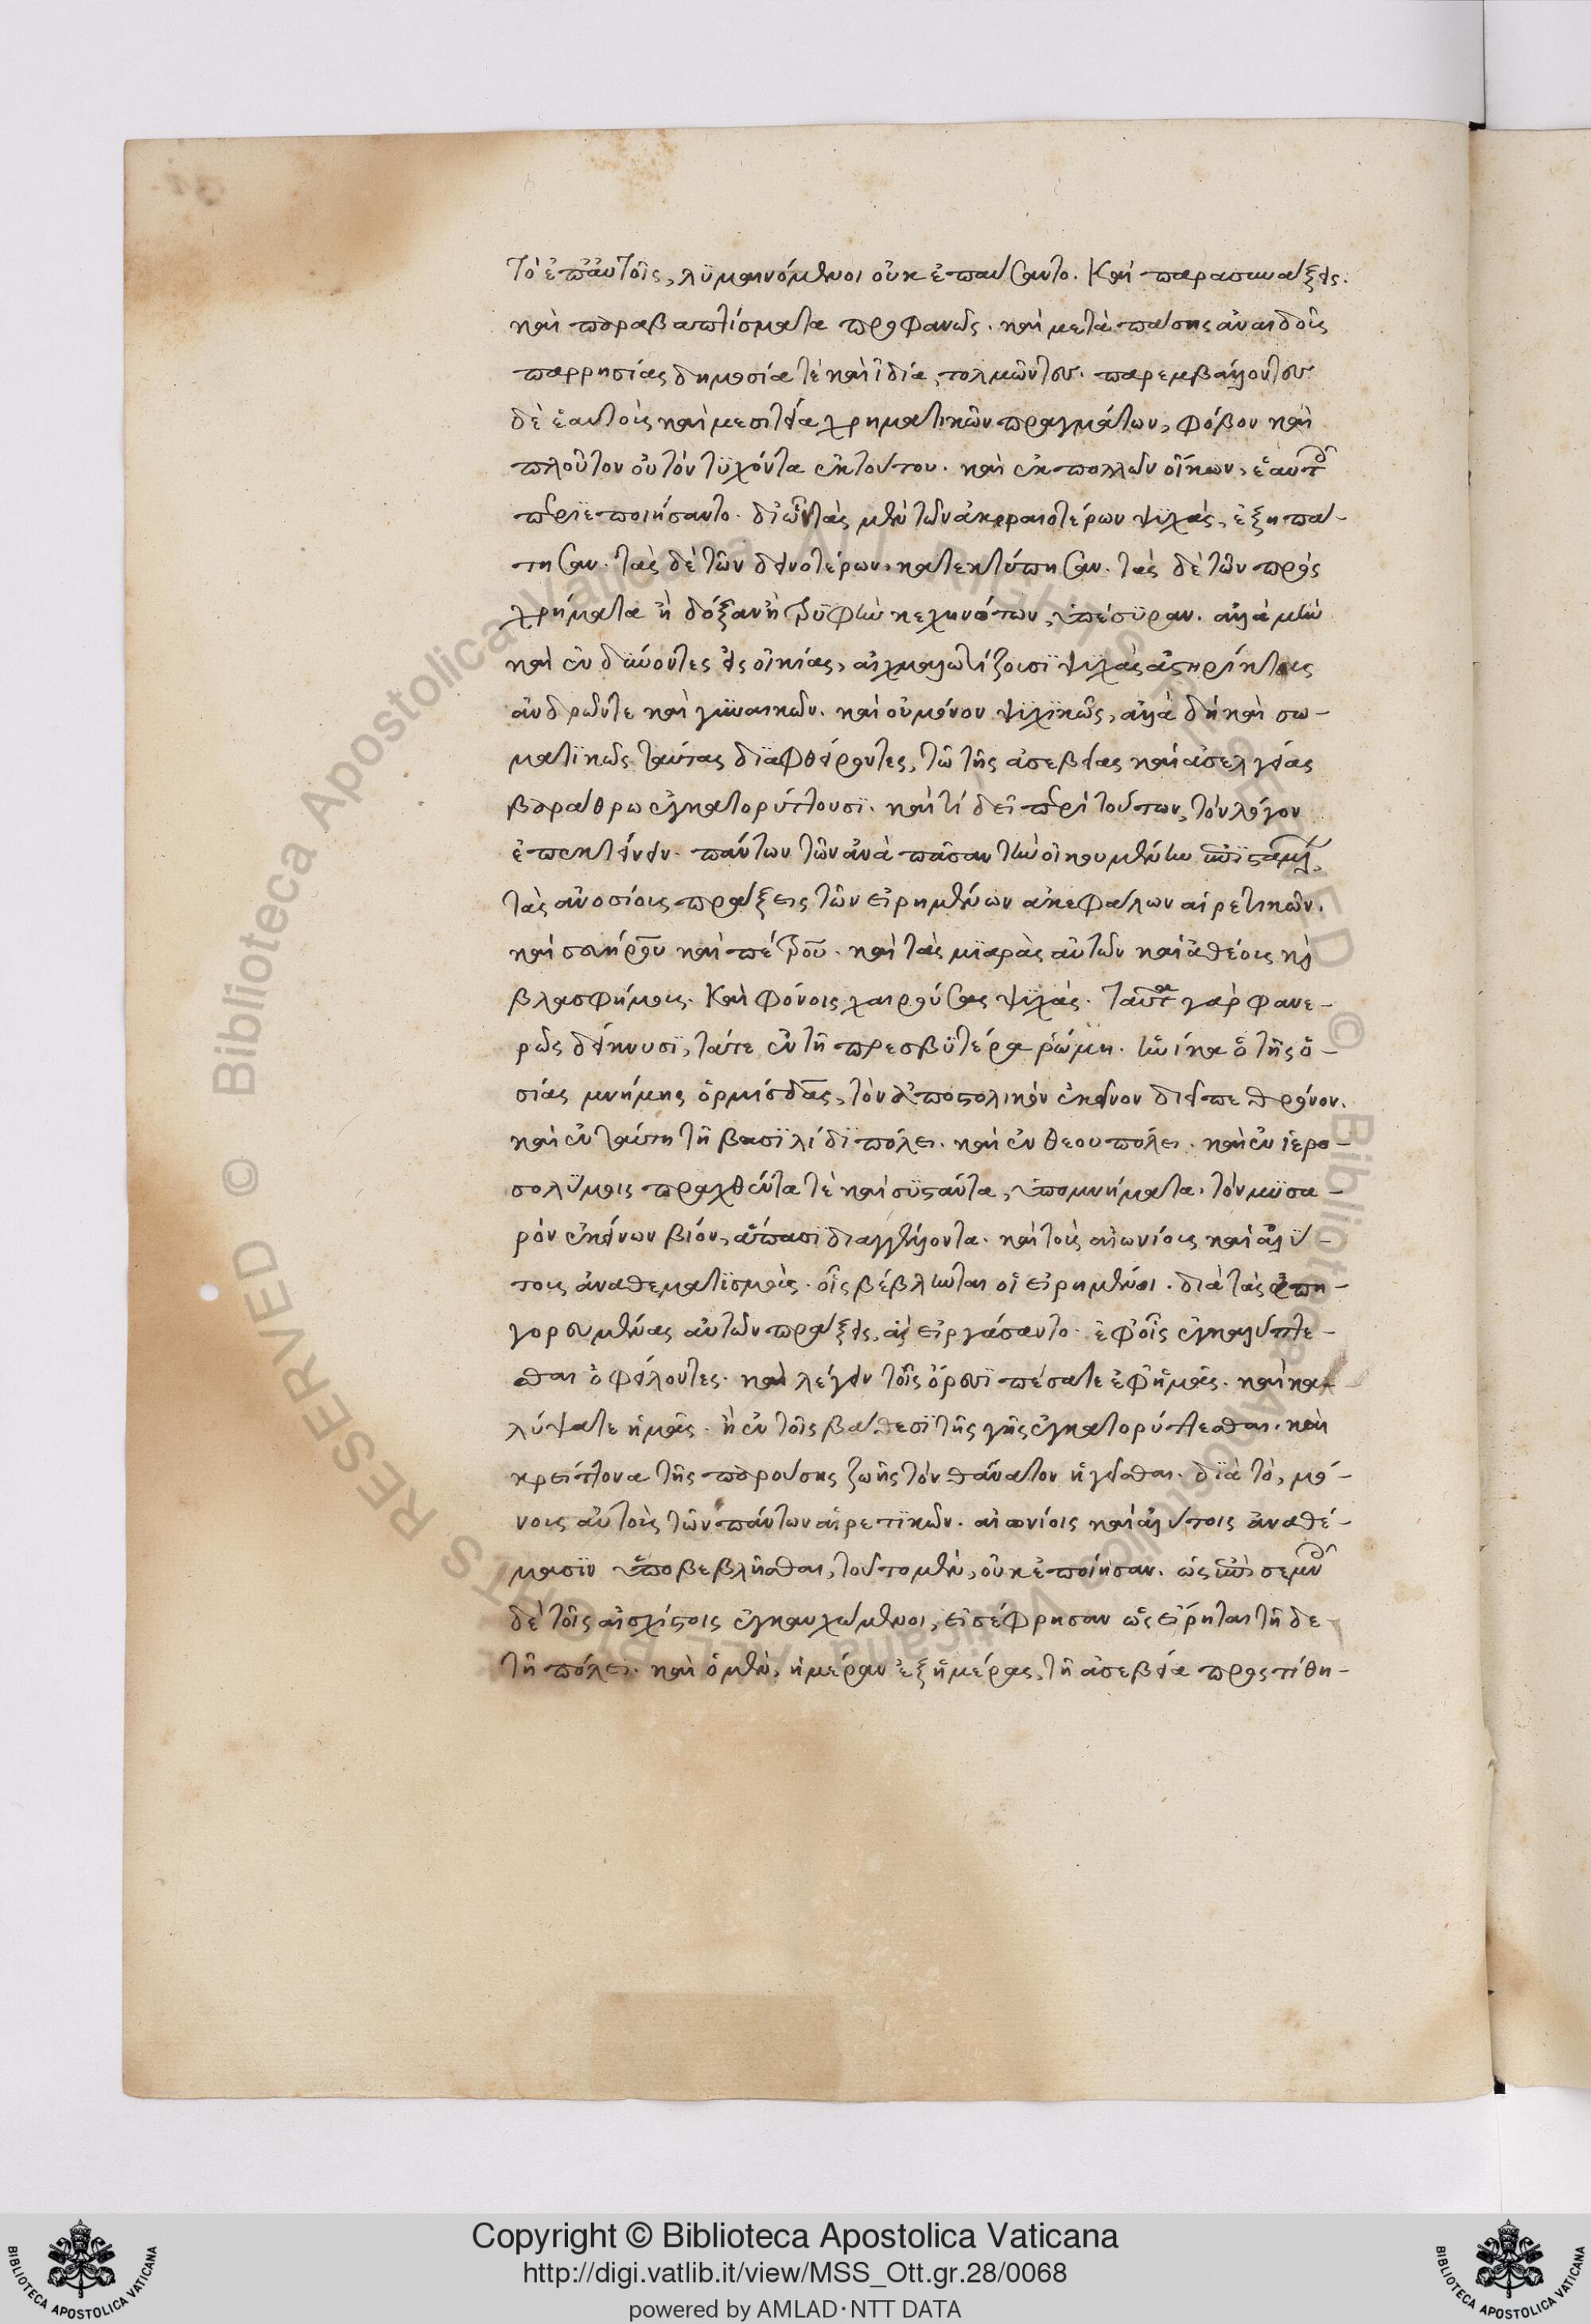 τὸ ἐπ' αὐτοῖς, λϋμαινόμενοι οὐκ ἐπαύσαντο. Καὶ παρασυνάξεις.
καὶ παραβαπτίσματα προφανῶς. καὶ μετὰ πάσης ἀναιδοῦς
παρρησίας δημοσία τὲ καὶ ἰδία, τολμῶντων. παρεμβάλλοντων
δὲ ἑαυτοὺς καὶ μεσιτεία χρηματικῶν πραγμάτων, φόβον καὶ
πλοῦτον οὐ τὸν τϋχόντα ἐκ τούτου. καὶ ἐκ πολλῶν οἴκων, ἑαυτοῖς
περιεποιήσαντο. δι' ὧν τὰς μὲν τῶν ἀκεραιοτέρων ψϋχὰς, ἐξηπά-
τησαν. τὰς δὲ τῶν δεινοτέρων, κατεκτύπησαν. τὰς δὲ τῶν πρὸς
χρήματα ἢ δόξαν ἢ τρϋφὴν κεχηνότων, ὑπέσϋραν. ἀλλὰ μὴν
καὶ ἐνδύνοντες εἰς οἰκίας, αἰχμαλωτίζουσϊ ψϋχὰς ἀστηρίκτους
ἀνδρῶν τε καὶ γϋναικῶν. καὶ οὐ μόνον ψϋχϊκῶς, ἀλλὰ δὴ καὶ σω-
ματϊκῶς ταύτας δϊαφθείροντες, τῶ τῆς ἀσεβείας καὶ ἀσελγείας
βαράθρω ἐγκατορύττουσϊ. καὶ τί δεῖ περὶ τούτων, τὸν λόγον
ἐπεκτείνειν. πάντων τῶν ἀνὰ πᾶσαν τὴν οἰκουμένην ἐπϊσταμένων
τὰς ἀνοσίους πράξεις τῶν εἰρημένων ἀκεφάλων αἱρετικῶν.
καὶ σευήρου καὶ πέτρου. καὶ τὰς μϊαρὰς αὐτῶν καὶ ἀθέους καὶ
βλασφήμους. Καὶ φόνοις χαιρούσας ψϋχάς. Ταῦτα γὰρ φανε-
ρῶς δείκνυσϊ, τάτε ἐν τῆ πρεσβϋτέρα ῥώμη. ἡνίκα ὁ τῆς ὁ-
σίας μνήμης ὁρμίσδας, τὸν ἀποστολικὸν ἐκεῖνον διεῖπε θρόνον.
καὶ ἐν ταύτη τῆ βασϊλίδϊ πόλει. καὶ ἐν θεουπόλει. καὶ ἐν ἱερο-
σολύμοις πραχθέντα τὲ καὶ σϋστάντα, ὑπομνήματα, τὸν μϋσα-
ρὸν ἐκείνων βίον, ἅπασϊ διαγγέλλοντα. καὶ τοὺς αἰωνίους καὶ ἀλύ-
τους ἀναθεματϊσμοὺς. οἷς βέβληνται οἱ εἰρημένοι. διὰ τὰς ἀπη-
γορευμένας αὐτῶν πράξεις, ἃς εἰργάσαντο. ἐφ' οἷς ἐγκαλύπτε-
σθαι ὀφείλοντες. καὶ λέγειν τοῖς ὄρεσϊ πέσατε ἐφ' ἡμᾶς. καὶ κα-
λύψατε ἡμᾶς. ἢ ἐν τοῖς βάθεσϊ τῆς γῆς ἐγκατορύττεσθαι. καὶ
κρείττονα τῆς παρούσης ζωῆς τὸν θάνατον ἡγεῖσθαι. δϊὰ τὸ, μό-
νους αὐτοὺς τῶν πάντων αἱρετϊκῶν. αἰωνίοις καὶ ἀλύτοις ἀναθέ-
μασϊν ὑποβεβλῆσθαι, τοῦτο μὲν, οὐκ ἐποίησαν. ὡς ἐπὶ σεμνοῖς
δὲ τοῖς αἰσχίστοις ἐγκαυχώμενοι, εἰσέφρησαν ὡς εἴρηται τῆδε
τῆ πόλει. καὶ ὁ μὲν, ἡμέραν ἐξ ἡμέρας, τῆ ἀσεβεία προστίθη-
Copyright © Biblioteca Apostolica Vaticana
http://digi.vatlib.it/view/MSS_Ott.gr.28/0068
powered by AMLAD·NTT DATA